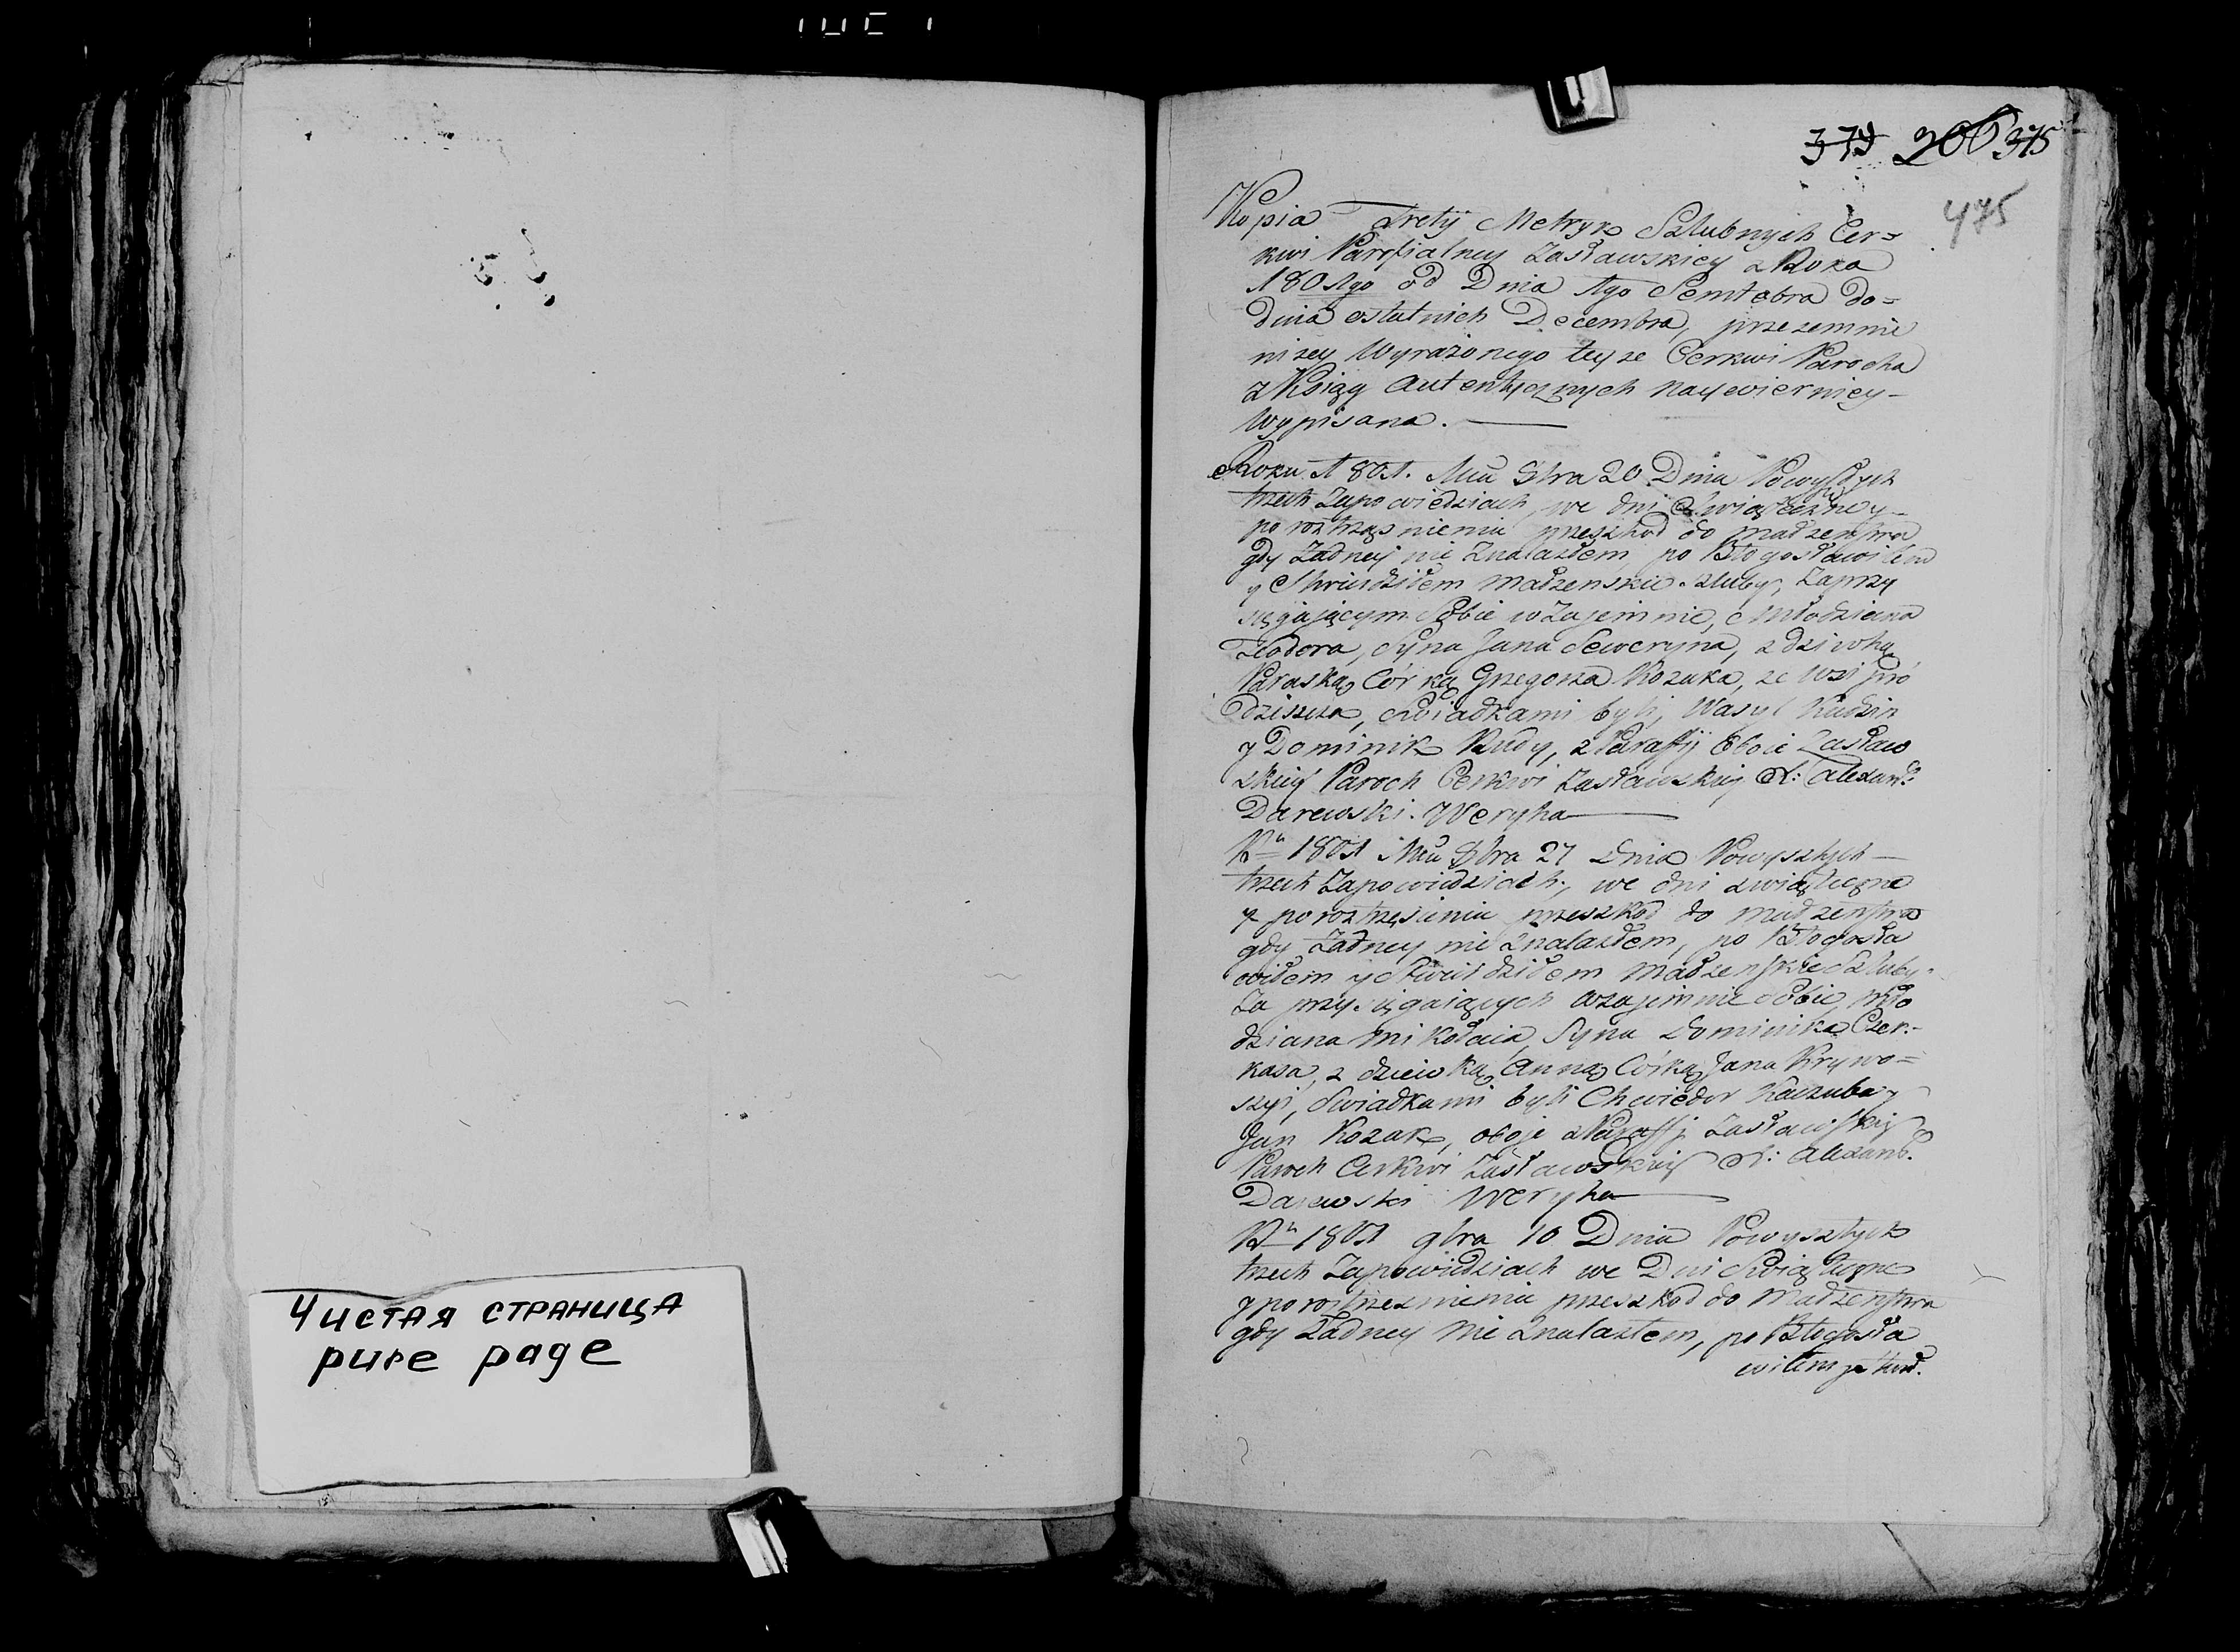 Чистая страница
pure page
379 206 375
475
Kopia Tretij Metryk Szlubnych Cer=
kwi Parafialney Zasławskiey z Roka
1801go od Dnia 1go Semtebra do=
dnia ostatnich Decembra, przezemnie
niżey Wyrażonego teyże Cerkwi Parocha
z Księgy Autentycznych naywierniey-
Wypisana.
Roku 1801. Mca 8bra 20 Dnia Powyszłych
trzech Zapowiedziach, we dni Swiąteczney-
po roztrząsnieniu przeszkod do Małżenstwa
gdy Żadney nie Znalazłem, po Błogosławiłem
y Stwirdziłem Małżenskie szluby, Zaprzy
sięgaiącym Sobie wzajemnie, Młodziana
Teodora, Syna Jana Seweryna, z dziwką
Paraską Córką Grzegorza Kozaka, ze Wsi
dziszcza, Swiadkami byli, Wasyl Kudzin
y Dominik Rudy, z Paraffij Oboie Zasław
skiey Paroch Cerkwi Zasławskiey X: Alexand:
Darewski. Weryha
Ru 1801 Mca 8bra 27 Dnia Powyszłych
trzech Zapowiedziach, we dni swiąteczne
y po roztrzęsieniu przeszkod do Małżenstwa
gdy Żadney nie Znalazłem, po Błogosła
wiłem y Stwirdziłem Małżenskie Szluby.
Za przysięgaiących wzajemnie Sobie, Mło
dziana Mikołaia, Syna Dominika Czer-
kasa, z dziewką Anną Córką Jana Krywo=
szyi, Swiadkami byli Chwiedor Kaczuba y
Jan Kozak, oboje z Paraffij Zasławskiey
Paroch Cerkwi Zasławskiey X: Alexand.
Darewski Weryha
Ru 1801 9bra 10 Dnia Powyszłych
trzech Zapowiedziach we Dni Swiąteczne
y po roztrzeznieniu przeszkod do Małżenstwa
gdy Żadney nie Znalazłem, po Błogosła
wiłem y